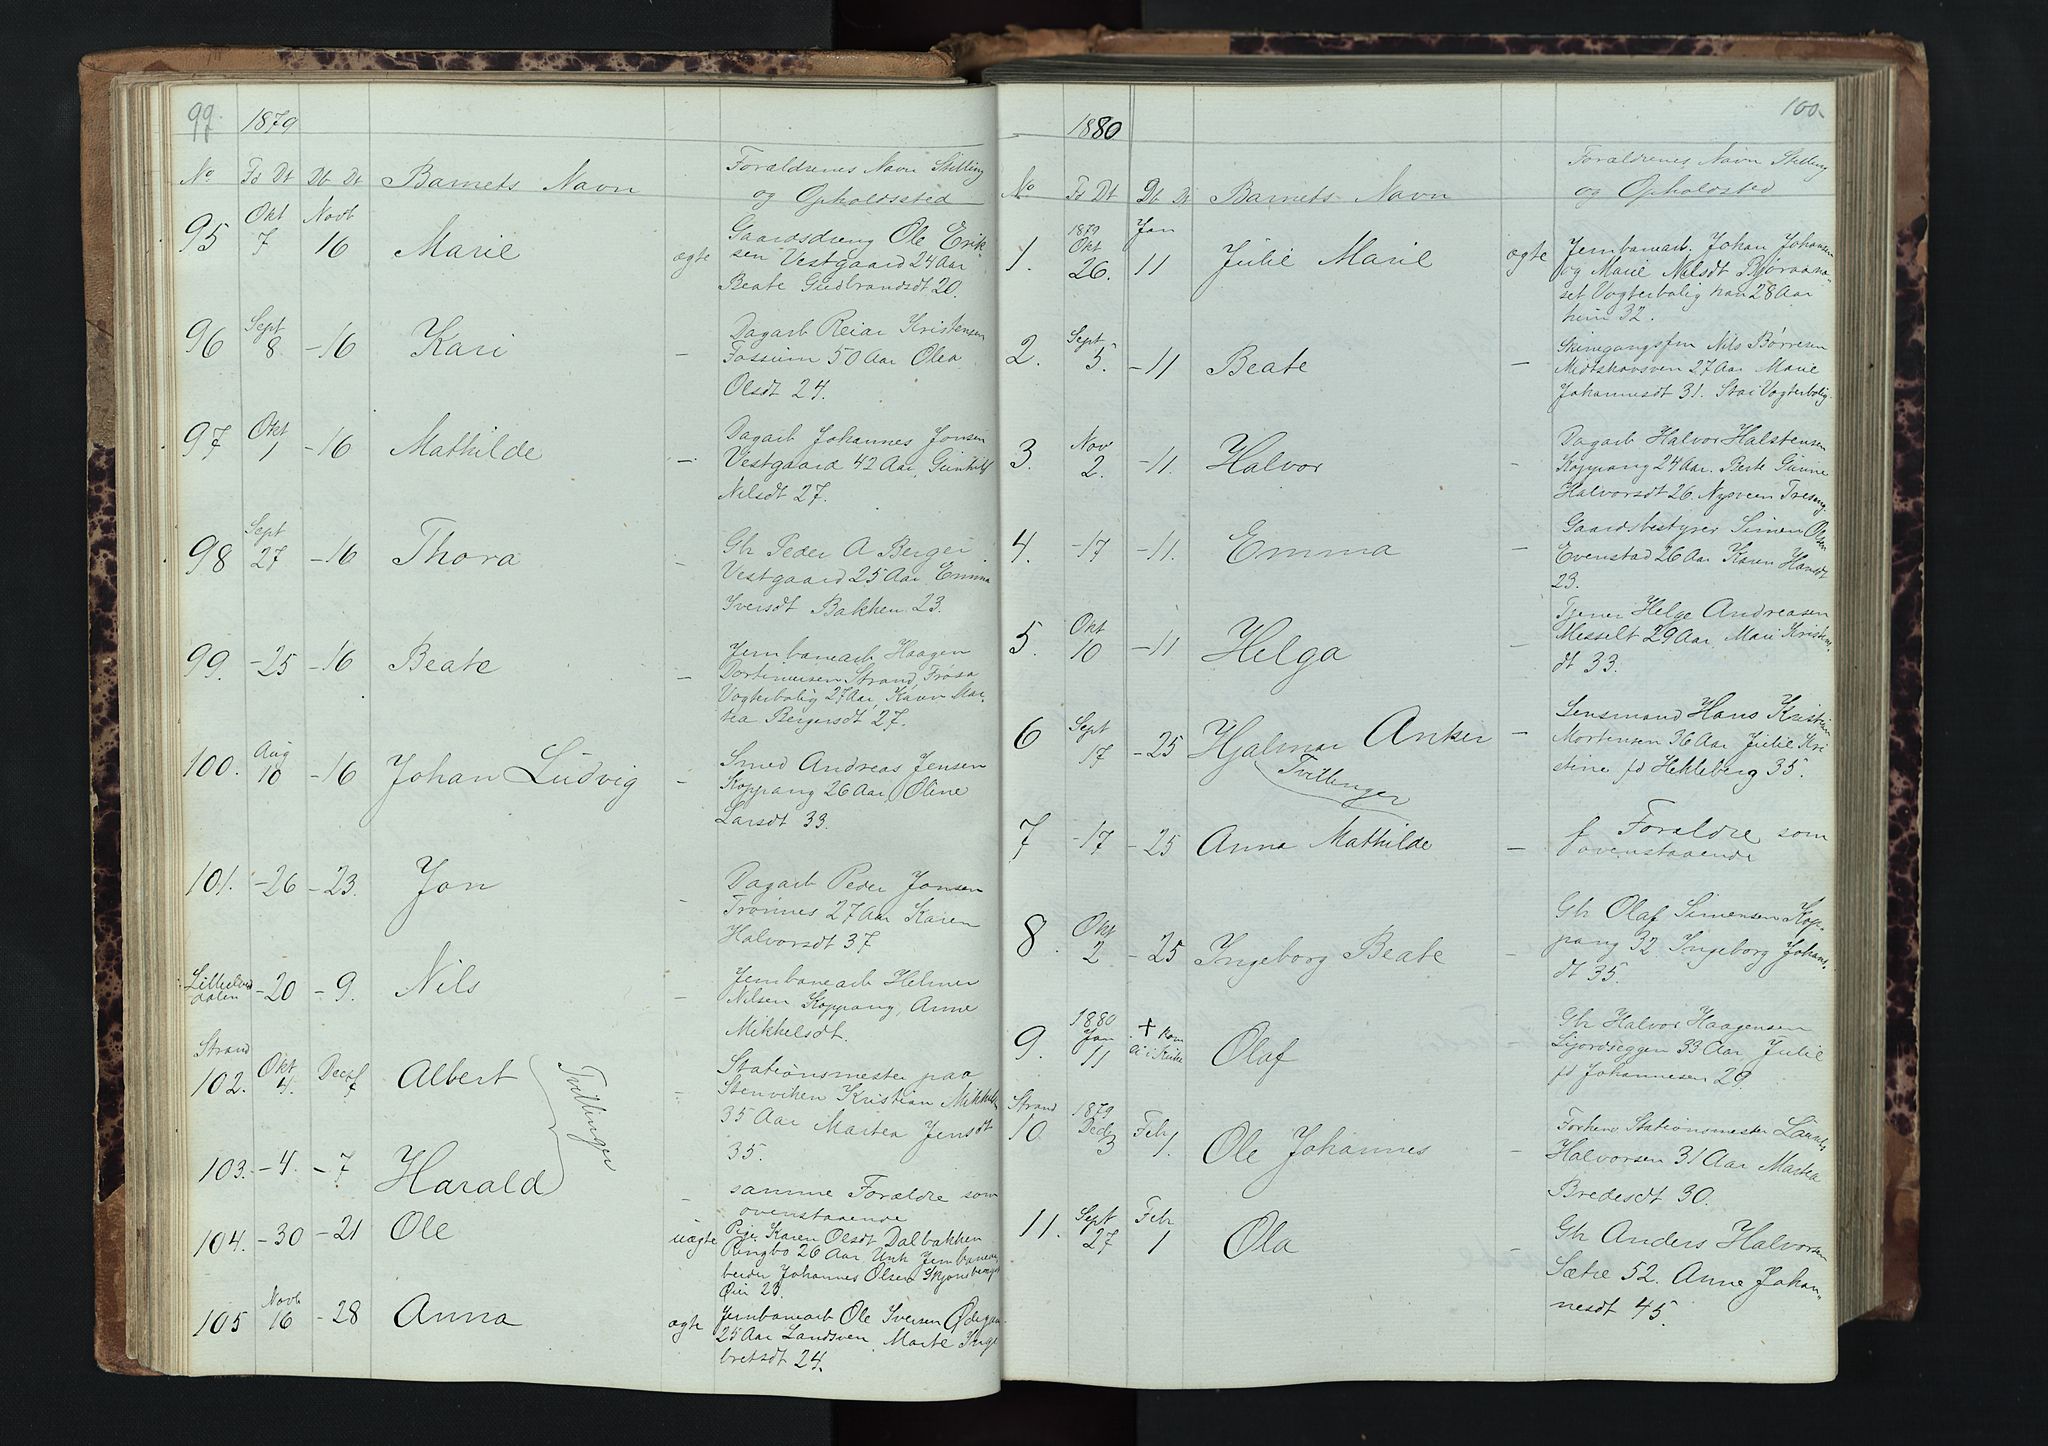 99. 1879
No Fd Dt Db Dt Barnets Navn Forældrenes Navn Stilling
og Opholdssted
95 Okt 7 Novb 16 Marie ægte Gaardsdreng Ole Erik-
sen Vestgaard 24 Aar
Beate Gudbrandsdt 20.
96 Sept 8. -16 Kari - Dagarb Reiar Kristensen
Fossum 50 Aar Olea
Olsdt 24.
97 Okt 1 -16 Mathilde - Dagarb Johannes Jonsen
Vestgaard 42 Aar, Gunhild
Nilsdt 27.
98 Sept 27 -16 Thora - Gbr Peder A Berger
Vestgaard 25 Aar, Emma
Iversdt Bakken 23.
99. -25 -16 Beate - Jernbanearb Haagen
Dortinusen Strand, Frøsa
Vogterbolig 27 Aar, Karen Mar-
tea Bergersdt 27.
100. Aug 10 -16 Johan Ludvig - Smed Andreas Jensen
Koppang 26 Aar, Oline
Larsdt 33.
101. -26 -23. Jon - Dagarb Peder Jonsen
Trønnes 27 Aar Karen
Halvorsdt 37
Lilleelve
dalen -20 -9. Nils - Jernbanearb Helmer
Nilsen Koppang, Anne
Mikkelsdt.
Strand
102. Okt 4. Decb 7 Albert Tvillinger - Stationsmester paa
Stenviken Kristian Mikkels
35 Aar Martea Jensdt
35.
103. -4. -7 Harald - samme Forældre som
ovenstaaende
104. -30 -21 Ole uægte Pige Karen Olsdt Dalbakken
Ringbo 26 Aar Unk Jernbanear-
beider Johannes Olsen Skjønsberg
Øien 23.
105 Novb 16 -28 Anna ægte Jernbanearb Ole Iversen Ødegaa
25 Aar Landsven, Marte Inge
bretsdt 24.
100.
1880
No Fd Dt Db Dt Barnets Navn Forældrenes Navn Stilling
og Opholdsted
1. 1879 Okt 26. Jan 11 Julie Marie ægte Jernbanearb. Johan Johansen
og Marie Nilsdt Bjøraana-
set Vogterbolig han 28 Aar
hun 32.
2. Sept 5. -11 Beate - Skinegangsfm Nils Børresen
Midtskovsven 27 Aar Marie
Johannesdt 31. Stai Vogterbolig.
3. Nov 2. -11. Halvor - Dagarb Halvor Halstensen
Koppang 24 Aar. Berte Gunne
Halvorsdt 26 Nysveen
4. -17 -11. Emma - Gaardsbestyrer Simen Olsen
Evenstad 26 Aar Karen Hansdt
23.
5. Okt 10 -11 Helga - Tjener Helge Andreasen
Messelt 29 Aar, Mari Kristens-
dt 33.
6 Sept 17 -25 Hjalmar Anker - Lensmand Hans Kristian
Mortensen 36 Aar Julie Kri
stine fd Hekleberg 35.
Tvillinger
7 -17 -25 Anna Mathilde - f Forældre som
ovenstaaende
8. Okt 2 -25 Ingeborg Beate - Gbr Olaf Simensen Kop-
pang 32 Ingeborg Johans-
dt 35.
9. 1880 Jan 11 + kom
ei i Kirke Olaf Gbr Halvor Haagensen
33 Aar Julie
fd Johannesen 29.
Strand
10. 1879 Decb 3 Feb 1. Ole Johannes - Forhenv Stationsmester
Halvorsen 31 Aar Martea
Bredesdt 30.
11. Sept 27 Febr 1 Ola - Gbr Anders Halvorsen
Sætre 52. Anne Johan-
nesdt 45.